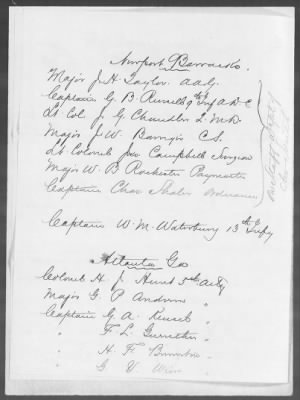 Newport Barracks.
Major J. H. Taylor. A.A.G.
Captain G. B. Russell 9th Infy A.D.C
Lt Col J. G. Chandler Q.M.D.
Major J. W. Barriger C.S.
Lt Colonel Jno Campbell Surgeon
Major W. B. Rochester Paymaster
Captain Chas Shaler Ordnance
Captain W. M. Waterbury 13th Infy
Atlanta Ga
Colonel H. J. Hunt 5th Arty
Major G. P. Andrews "
Captain G. A. "
" F. L. Guenther "
" H. F. "
" G. V. "